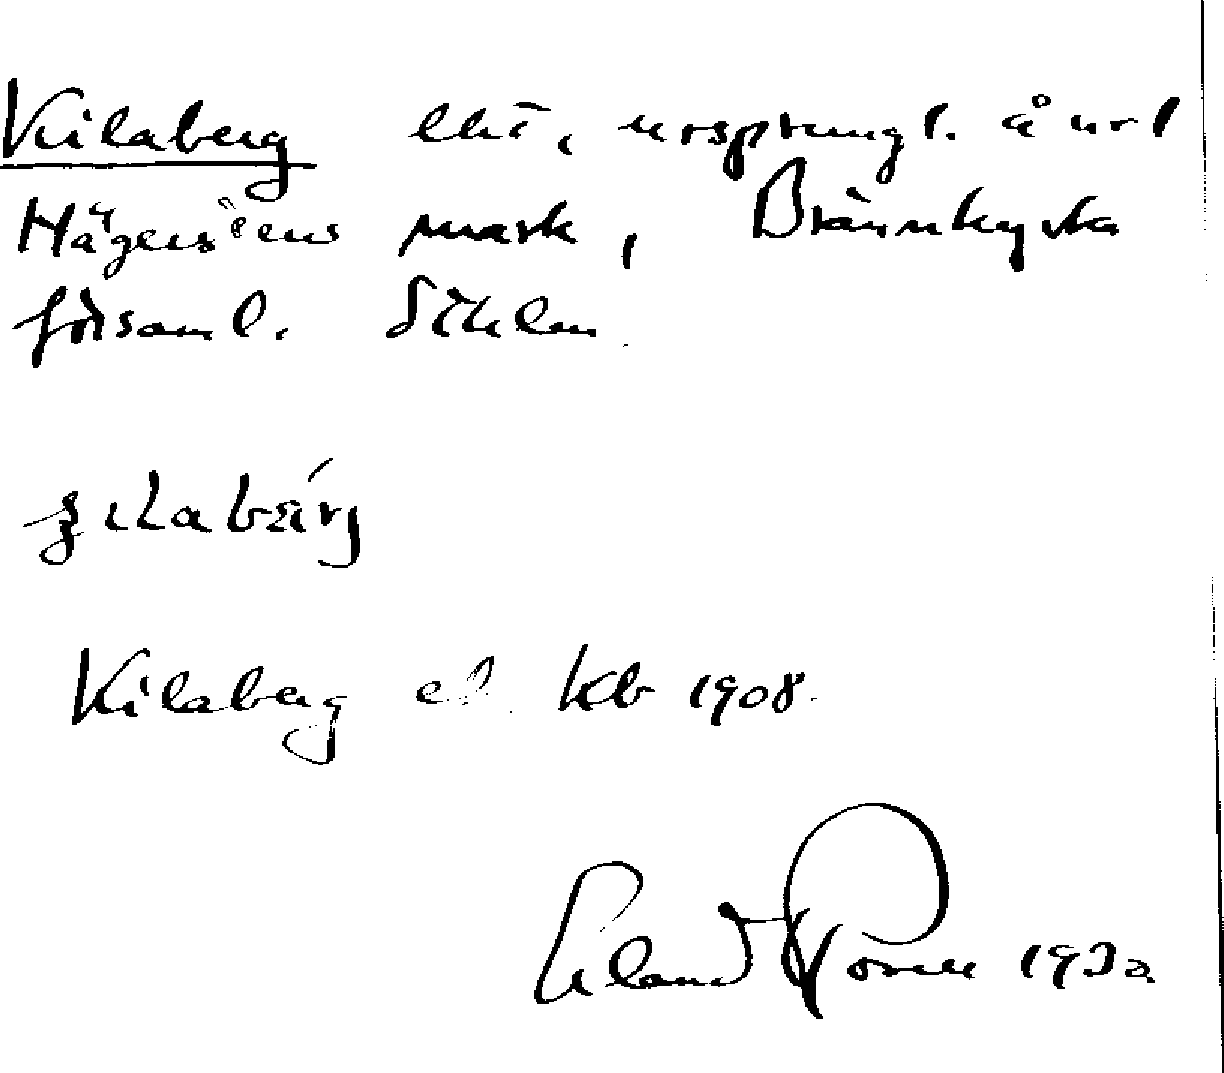 Kilaberg lht, ursprungl. å url
Hägerstens mark, Brännkyrka
församl. Sthlm.
Kilaberg el. kb 1908.
Erland Rosell 1930